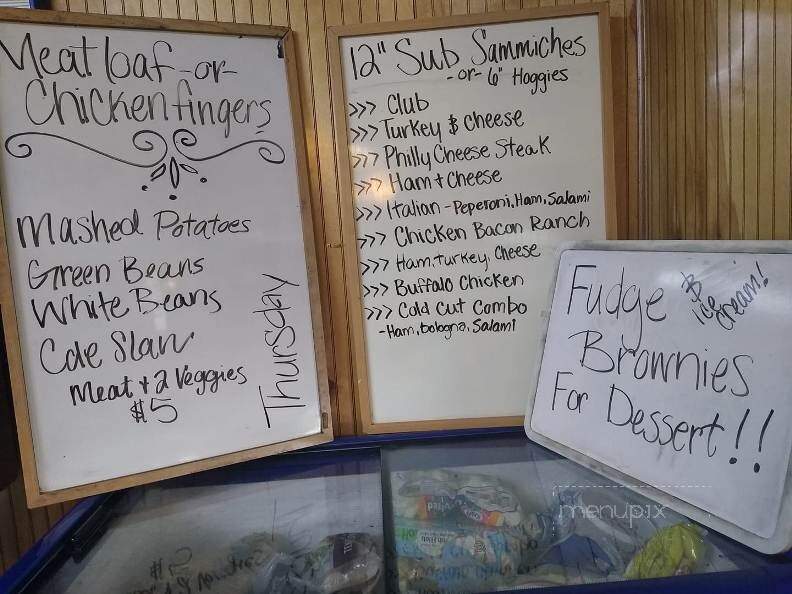 Meatloaf -or-
Chicken fingers
Mashed Potatoes
Green Beans
White Beans
Cole Slaw
Meat + 2 Veggies
$5
Thursday
12" Sub Sammiches
-or- 6" Hoggies
>>> Club
>>> Turkey & Cheese
>>> Philly Cheese Steak
>>> Ham + Cheese
>>> Italian - Peperoni, Ham, Salami
>>> Chicken Bacon Ranch
>>> Ham, turkey, Cheese
>>> Buffalo Chicken
>>> Cold Cut Combo
- Ham, bologna, Salami
Fudge
& Ice Cream!
Brownies
For Dessert!!
menupix